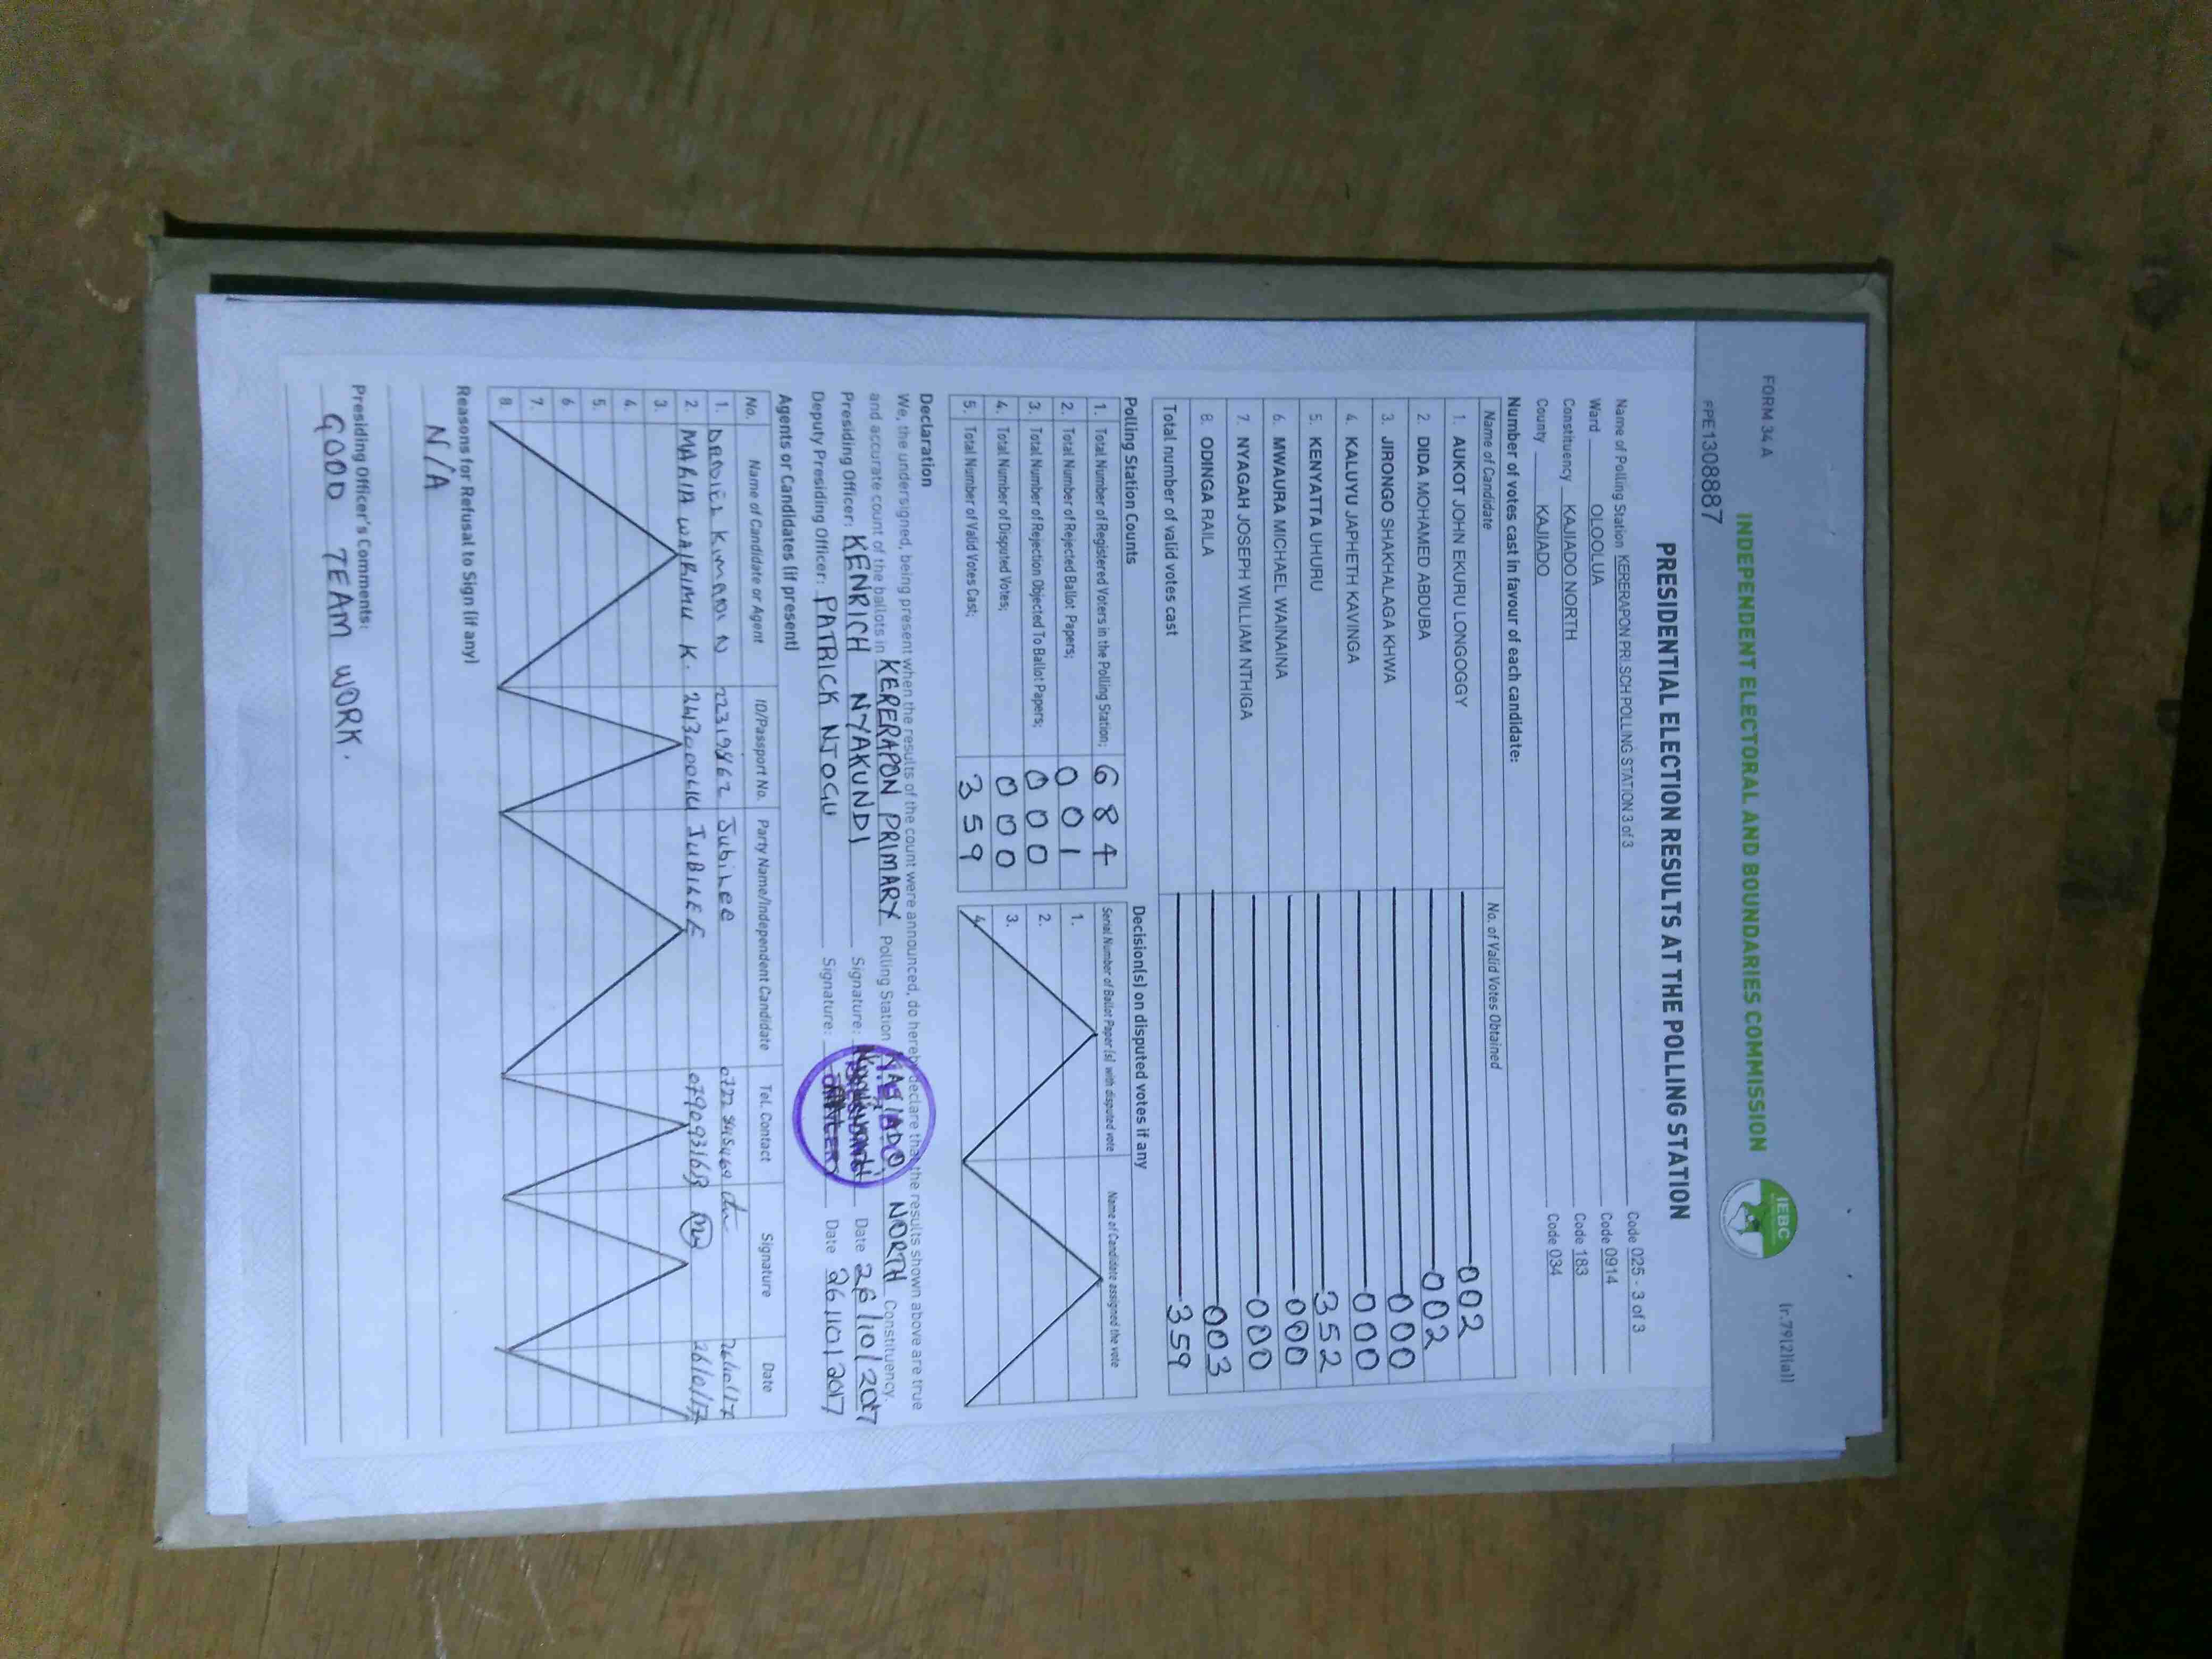 FORM 34 A
(r.79(2)(a))
INDEPENDENT ELECTORAL AND BOUNDARIES COMMISSION
IEBC
PE1308887
PRESIDENTIAL ELECTION RESULTS AT THE POLLING STATION
Name of Polling Station KERERAPON PRI.SCH POLLING STATION 3 of 3 Code 025 - 3 of 3
Ward OLOOLUA Code 0914
Constituency KAJIADO NORTH Code 183
County KAJIADO Code 034
Number of votes cast in favour of each candidate:
Name of Candidate No. of Valid Votes Obtained
1. AUKOT JOHN EKURU LONGOGGY 002
2. DIDA MOHAMED ABDUBA 002
3. JIRONGO SHAKHALAGA KHWA 000
4. KALUYU JAPHETH KAVINGA 000
5. KENYATTA UHURU 352
6. MWAURA MICHAEL WAINAINA 000
7. NYAGAH JOSEPH WILLIAM NTHIGA 000
8. ODINGA RAILA 003
Total number of valid votes cast 359
Polling Station Counts
1. Total Number of Registered Voters in the Polling Station; 684
2. Total Number of Rejected Ballot Papers; 001
3. Total Number of Rejection Objected To Ballot Papers; 000
4. Total Number of Disputed Votes; 000
5. Total Number of Valid Votes Cast; 359
Decision(s) on disputed votes if any
Serial Number of Ballot Paper (s) with disputed vote Name of Candidate assigned the vote
1.
2.
3.
4.
Declaration
We, the undersigned, being present when the results of the count were announced, do hereby declare that the results shown above are true
and accurate count of the ballots in KERERAPON PRIMARY Polling Station KAJIADO NORTH Constituency.
Presiding Officer: KENRICH NYAKUNDI Signature: Date 26/10/2017
Deputy Presiding Officer: PATRICK NJOGU Signature: Date 26/10/2017
Agents or Candidates (if present)
No. Name of Candidate or Agent ID/Passport No. Party Name/Independent Candidate Tel. Contact Signature Date
1. DANIEL KIMANI N Jubilee 26/10/17
2. MARIA WAIRIMU K. JUBILEE 26/10/17
3.
4.
5.
6.
7.
8.
Reasons for Refusal to Sign (if any)
N/A
Presiding Officer's Comments:
GOOD TEAM WORK.